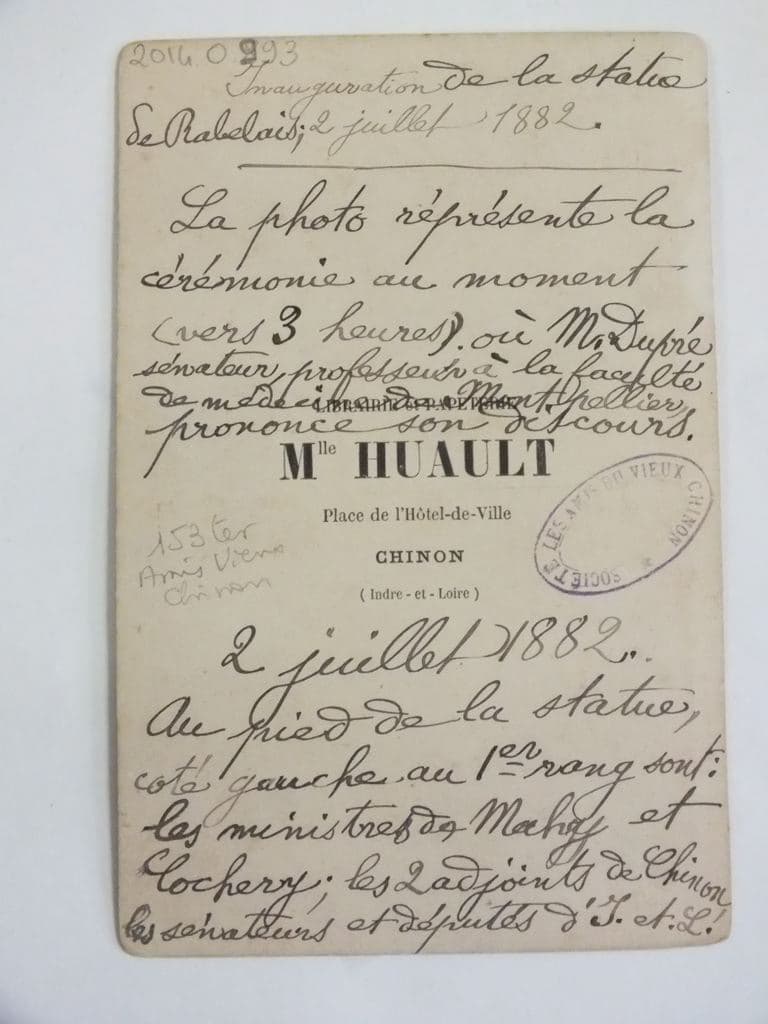 2014.0.993
Inauguration de la statue
de Rabelais; 2 juillet 1882.
La photo réprésente la
cérémonie au moment
(vers 3 heures). où M. Dupré
sénateur, professeur à la faculté
de médecine de Montpellier,
prononce son discours.
LIBRAIRIE & PAPETERIE
Mlle HUAULT
Place de l'Hôtel-de-Ville
CHINON
(Indre-et-Loire)
SOCIÉTÉ LES AMIS DU VIEUX CHINON
153 ter
Amis Vieux
Chinon
2 juillet 1882.
Au pied de la statue,
coté gauche au 1er rang sont:
les ministres de Mahy et
Cochery; les 2 adjoints de Chinon
les sénateurs et députés d'I. et. L.